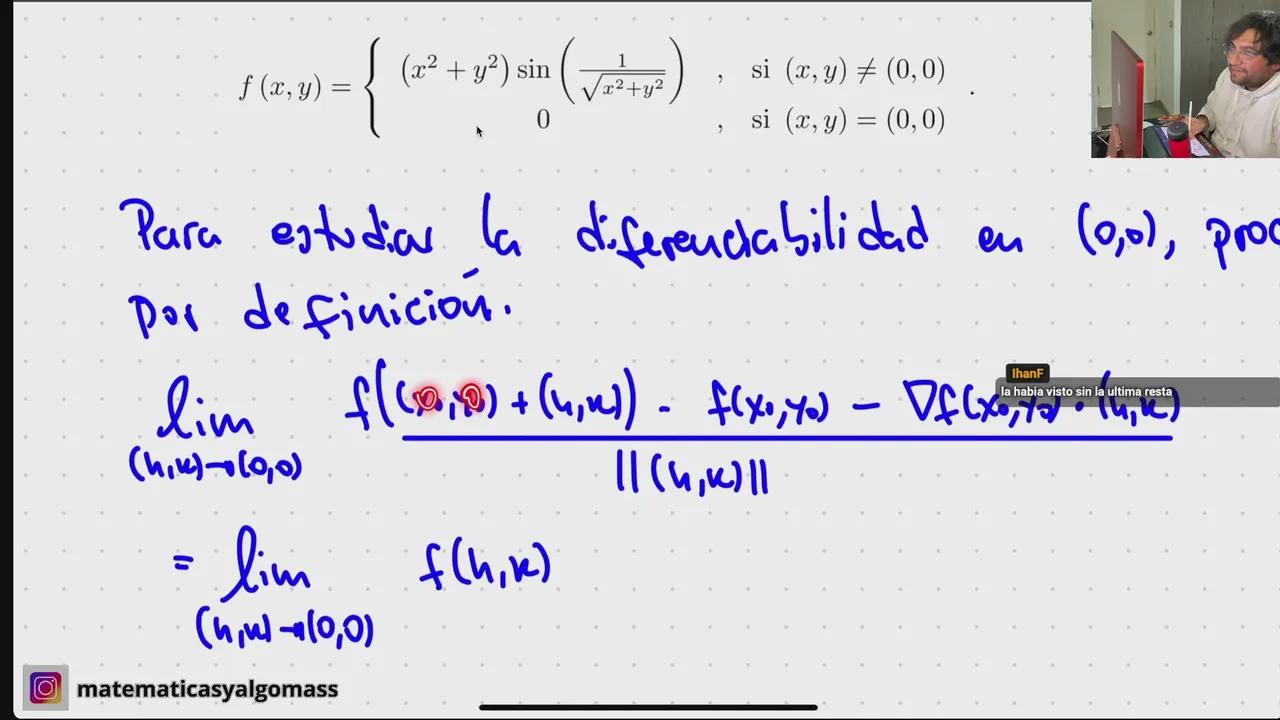 f (x, y) = { (x² + y²) sin ( 1 / √x²+y² ) , si (x, y) ≠ (0, 0)
0 , si (x, y) = (0, 0) .
Para estudiar la diferenciabilidad en (0,0), proc
por definición.
lim (h,k)→(0,0) f((0,0) + (h,k)) - f(x₀,y₀) - ∇f(x₀,y₀) · (h,k) / ||(h,k)||
IhanF
la había visto sin la ultima resta
= lim (h,k)→(0,0) f(h,k)
matematicasyalgomass